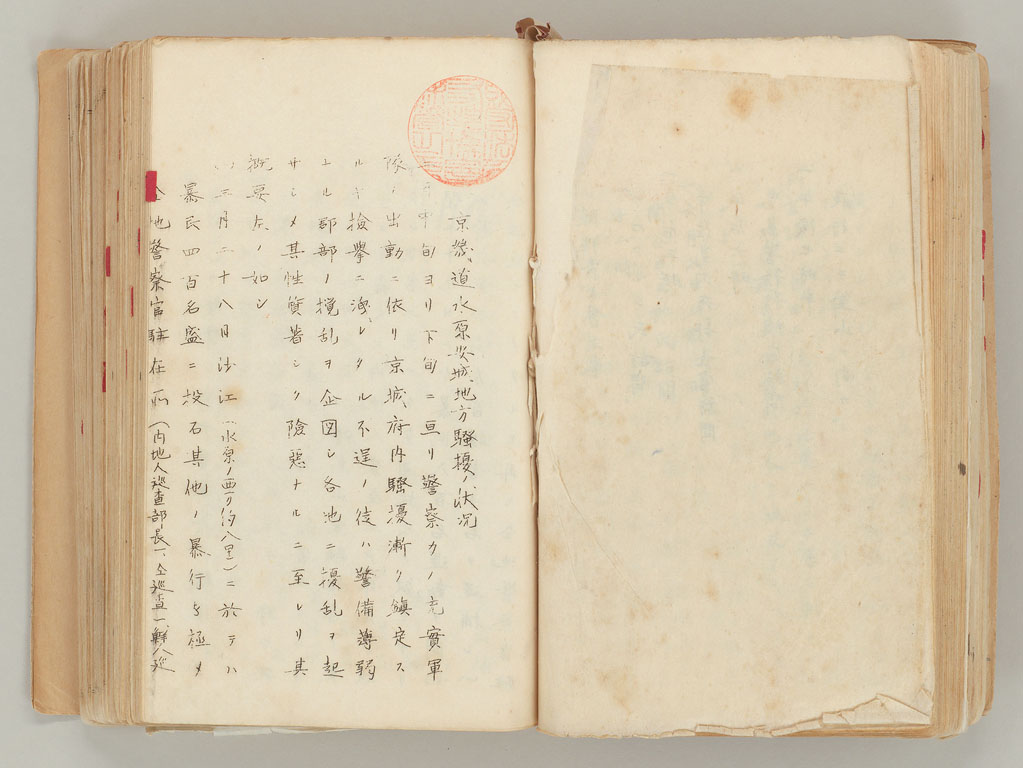 京畿道水原安城地方騒擾ノ状況
三月中旬ヨリ下旬ニ亘リ警察力ノ充實軍
隊ノ出動ニ依リ京城府内騒擾漸ク鎮定ス
ルヤ検挙ニ洩レタル不逞ノ徒ハ警備薄弱
ナル郡部ノ攪乱ヲ企図シ各地ニ擾乱ヲ起
サシメ其性質著シク険悪ナルニ至レリ其
概要左ノ如シ
三月二十八日沙江(水原ノ西方約八里)ニ於テハ
暴民四百名盛ニ投石其他ノ暴行ヲ極メ
仝地警察官駐在所(内地人巡査部長一、仝巡査一、鮮人巡